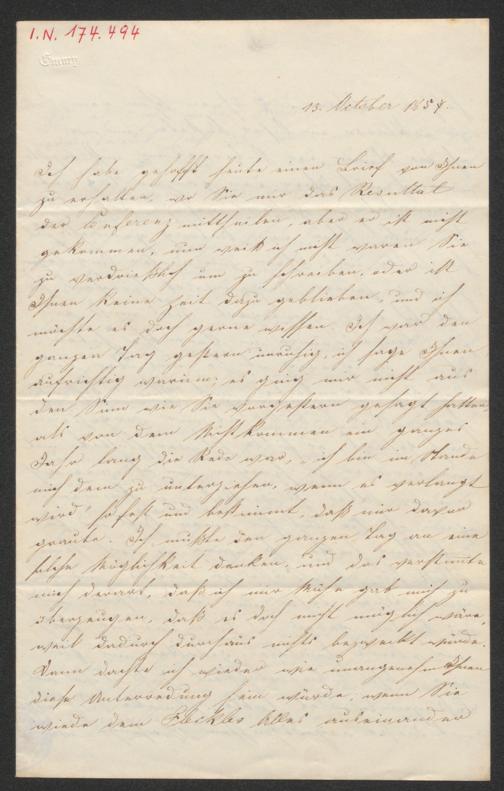 I.N. 174.494
Emmy
13. October 1857.
Ich habe gehofft heute einen Brief von Ihnen
zu erhalten, wo Sie mir das Resultat
der Conferenz mittheilen, aber er ist nicht
gekommen, nun weiß ich nicht waren Sie
zu verdrießlich um zu schreiben, oder ist
Ihnen keine Zeit dazu geblieben, und ich
möchte es doch gerne wissen. Ich war den
ganzen Tag gestern unruhig, ich sage Ihnen
aufrichtig warum; es ging mir nicht aus
den Sinn wie Sie vorgestern gesagt hatten,
als von dem Nichtkommen ein ganzes
Jahr lang die Rede war, ich bin im Stande
mich dem zu unterziehen, wenn es verlangt
wird, so fest und bestimmt, daß mir davor
graute. Ich mußte den ganzen Tag an eine
solche Möglichkeit denken, und das verstimmte
mich derart, daß ich mir Mühe gab mich zu
überzeugen, daß es doch nicht möglich wäre,
weil dadurch durchaus nichts bezweckt würde.
Dann dachte ich wieder wie unangenehm Ihnen
diese Unterredung sein würde, wenn Sie
wieder dem Alles auseinander